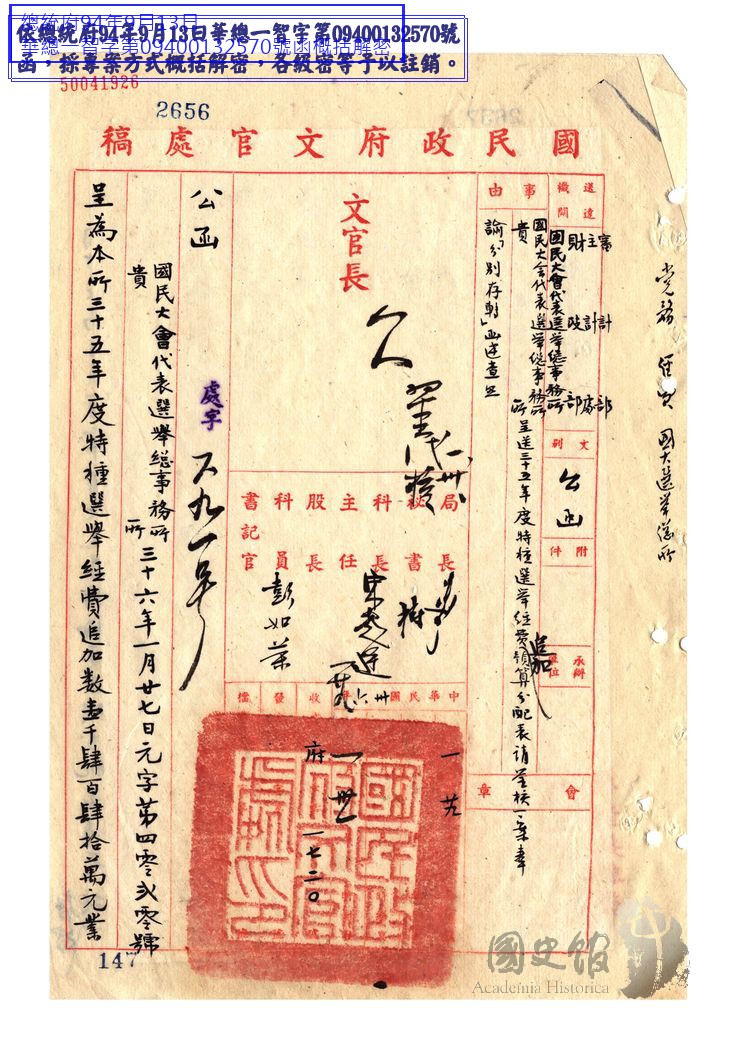 總統府94年9月13日
華總一智字第09400132570號函概括解密
依總統府94年9月13日華總一智字第09400132570號
函，採專案方式概括解密，各級密等予以註銷。
50041926
2656
國民政府文官處稿
送達機關
審計部
主計處
財政部
國民大會代表選舉總事務所
文別
公函
附件
承辦單位
會章
事由
國民大會代表選舉總事務所
貴所
呈送三十五年度特種選舉經費追加預算分配表請鑒核一案奉
諭「分別存轉」函達查照
文官長
局長
秘書
科長
主任
股長
科員
書記官
彭如萊
中華民國卅六年
收
發
檔
府
一 廿九
一 卅一
一七二〇
國民政府文官處印
公函
處字
國民大會代表選舉總事務所
貴所
三十六年一月廿七日元字第四零弍零號
呈為本所三十五年度特種選舉經費追加數壹千肆百肆拾萬元業
147
國大選舉總所
國史館
Academia Historica